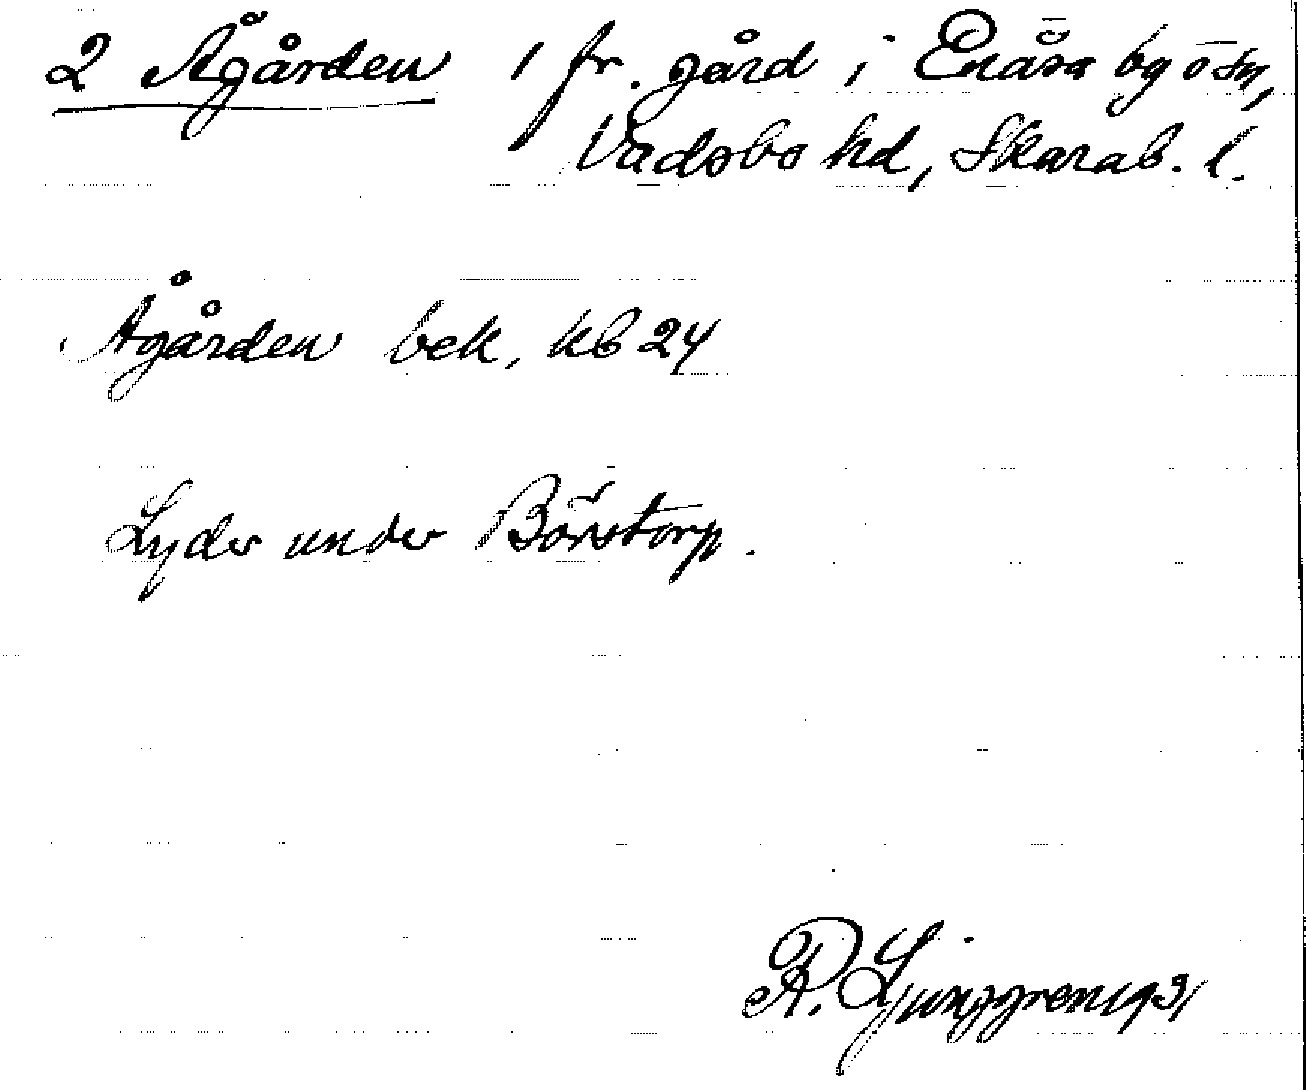 2 Ågården 1 fr. gård i Enåsa by o sn,
Vadsbo hd, Skarab. l.
Ågården bek, kb 24
Lyder under Börstorp.
R. Ljunggren 1931